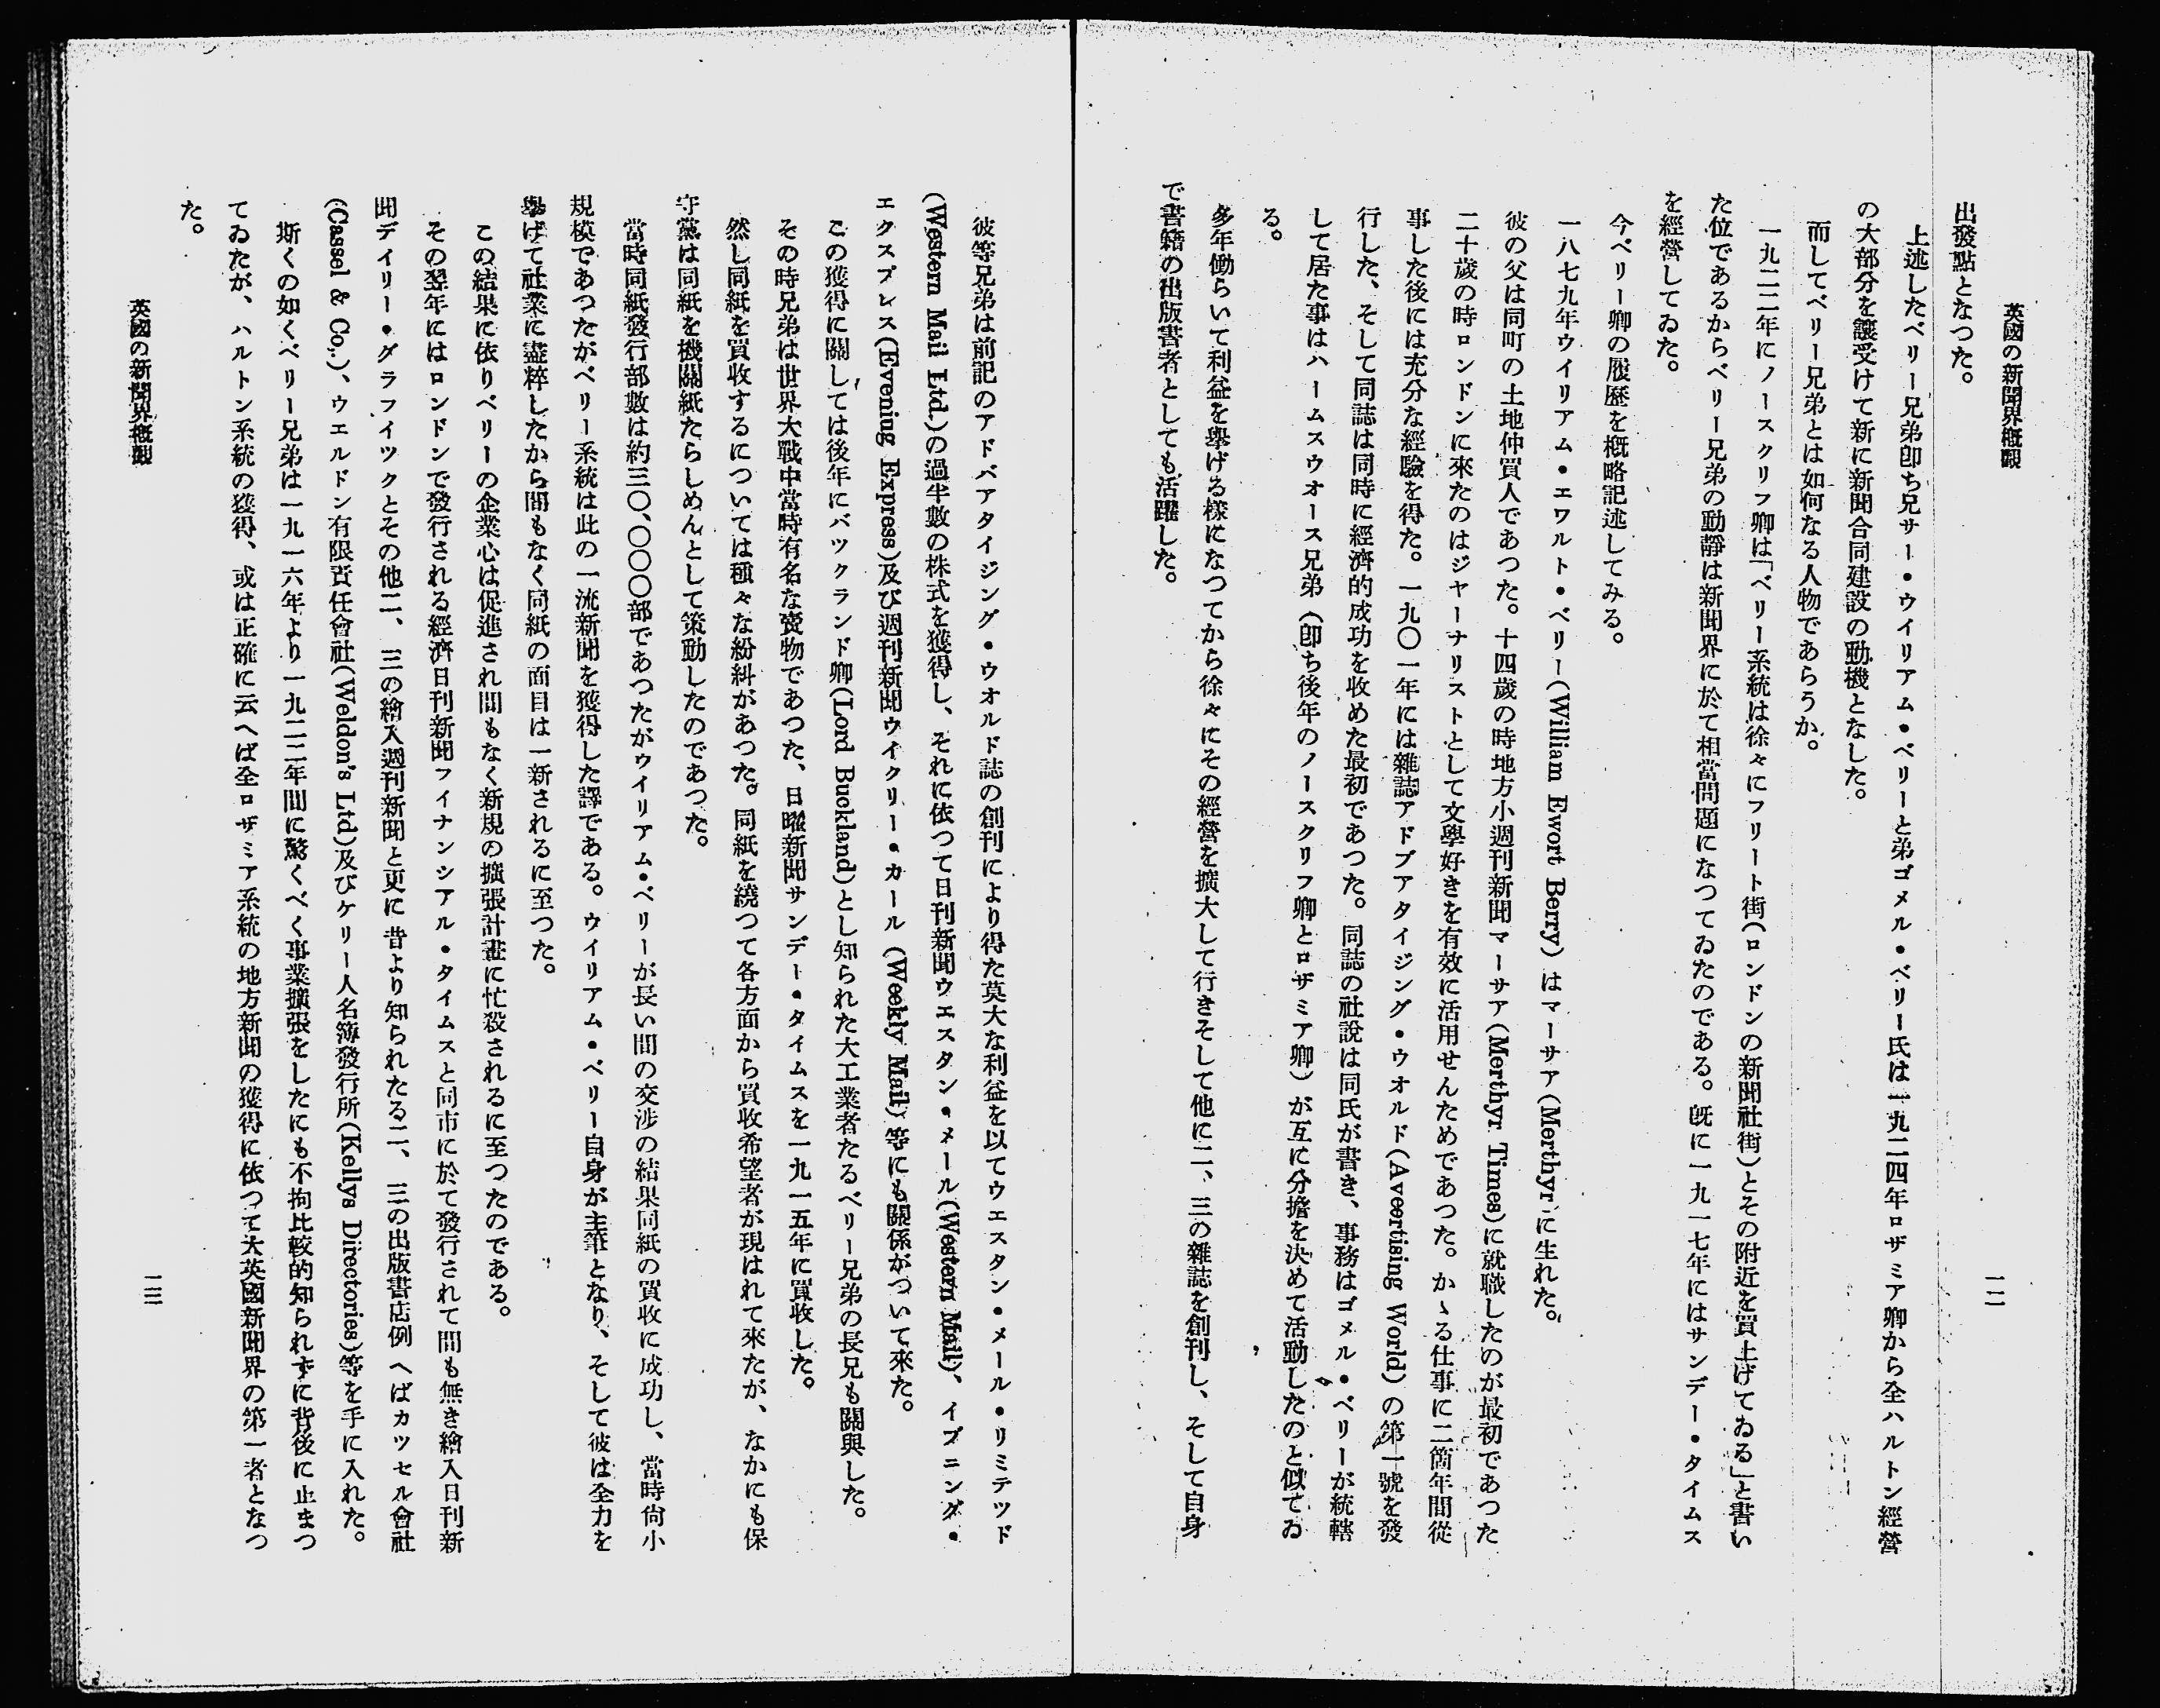 英國の新聞界槪觀
一二
出發點となつた。
上述したベリー兄弟卽ち兄サー・ウイリアム・ベリーと弟ゴメル・ベリー氏は一九二四年ロザミア卿から全ハルトン經營
の大部分を讓受けて新に新聞合同建設の動機となした。
而してベリー兄弟とは如何なる人物であらうか。
一九二二年にノースクリフ卿は「ベリー系統は徐々にフリート街(ロンドンの新聞社街)とその附近を買上げてゐる」と書い
た位であるからベリー兄弟の動靜は新聞界に於て相當問題になつてゐたのである。旣に一九一七年にはサンデー・タイムス
を經營してゐた。
今ベリー卿の履歷を槪略記述してみる。
一八七九年ウイリアム・エワルト・ベリー(William Ewort Berry) はマーサア(Merthyr)に生れた。
彼の父は同町の土地仲買人であつた。十四歲の時地方小週刊新聞マーサア(Merthyr Times)に就職したのが最初であつた
二十歲の時ロンドンに來たのはジヤーナリストとして文學好きを有效に活用せんためであつた。かゝる仕事に二箇年間從
事した後には充分な經驗を得た。一九〇一年には雜誌アドブアタイジング・ウオルド(Aveertising World) の第一號を發
行した、そして同誌は同時に經濟的成功を收めた最初であつた。同誌の社說は同氏が書き、事務はゴメル・ベリーが統轄
して居た事はハームスウオース兄弟 (卽ち後年のノースクリフ卿とロザミア卿) が互に分擔を決めて活動したのと似てゐ
る。
多年働らいて利益を擧げる樣になつてから徐々にその經營を擴大して行きそして他に二、三の雜誌を創刊し、そして自身
で書籍の出版書者としても活躍した。
彼等兄弟は前記のアドベアタイジング・ウオルド誌の創刊により得た莫大な利益を以てウエスタン・メール・リミテツド
(Western Mail Ltd.)の過半數の株式を獲得し、それに依つて日刊新聞ウエスタン・メール(Western Mail)、イブニング・
エクスプレス(Evening Express)及び週刊新聞ウイクリー・カール (Weekly Mail) 等にも關係がついて來た。
この獲得に關しては後年にバツクランド卿(Lord Buckland)とし知られた大工業者たるベリー兄弟の長兄も關與した。
その時兄弟は世界大戰中當時有名な賣物であつた、日曜新聞サンデー・タイムスを一九一五年に買收した。
然し同紙を買收するについては種々な紛糾があつた。同紙を繞つて各方面から買收希望者が現はれて來たが、なかにも保
守黨は同紙を機關紙たらしめんとして策動したのであつた。
當時同紙發行部數は約三〇、〇〇〇部であつたがウイリアム・ベリーが長い間の交涉の結果同紙の買收に成功し、當時尙小
規模であつたがベリー系統は此の一流新聞を獲得した譯である。ウイリアム・ベリー自身が主筆となり、そして彼は全力を
擧げて社業に盡粹したから間もなく同紙の面目は一新されるに至つた。
この結果に依りベリーの企業心は促進され間もなく新規の擴張計畫に忙殺されるに至つたのである。
その翌年にはロンドンで發行される經濟日刊新聞フイナンシアル・タイムスと同市に於て發行されて間も無き繪入日刊新
聞デイリー・グラフイツクとその他二、三の繪入週刊新聞と更に昔より知られたる二、三の出版書店例へばカツセル會社
(Cassel & Co,.)、ウエルドン有限責任會社(Weldon's Ltd)及びケリー人名簿發行所(Kellys Directories)等を手に入れた。
斯くの如くベリー兄弟は一九一六年より一九二二年間に驚くべく事業擴張をしたにも不拘比較的知られずに背後に止まつ
てゐたが、ハルトン系統の獲得、或は正確に云へば全ロザミア系統の地方新聞の獲得に依つて大英國新聞界の第一者となつ
た。
英國の新聞界槪觀
一三